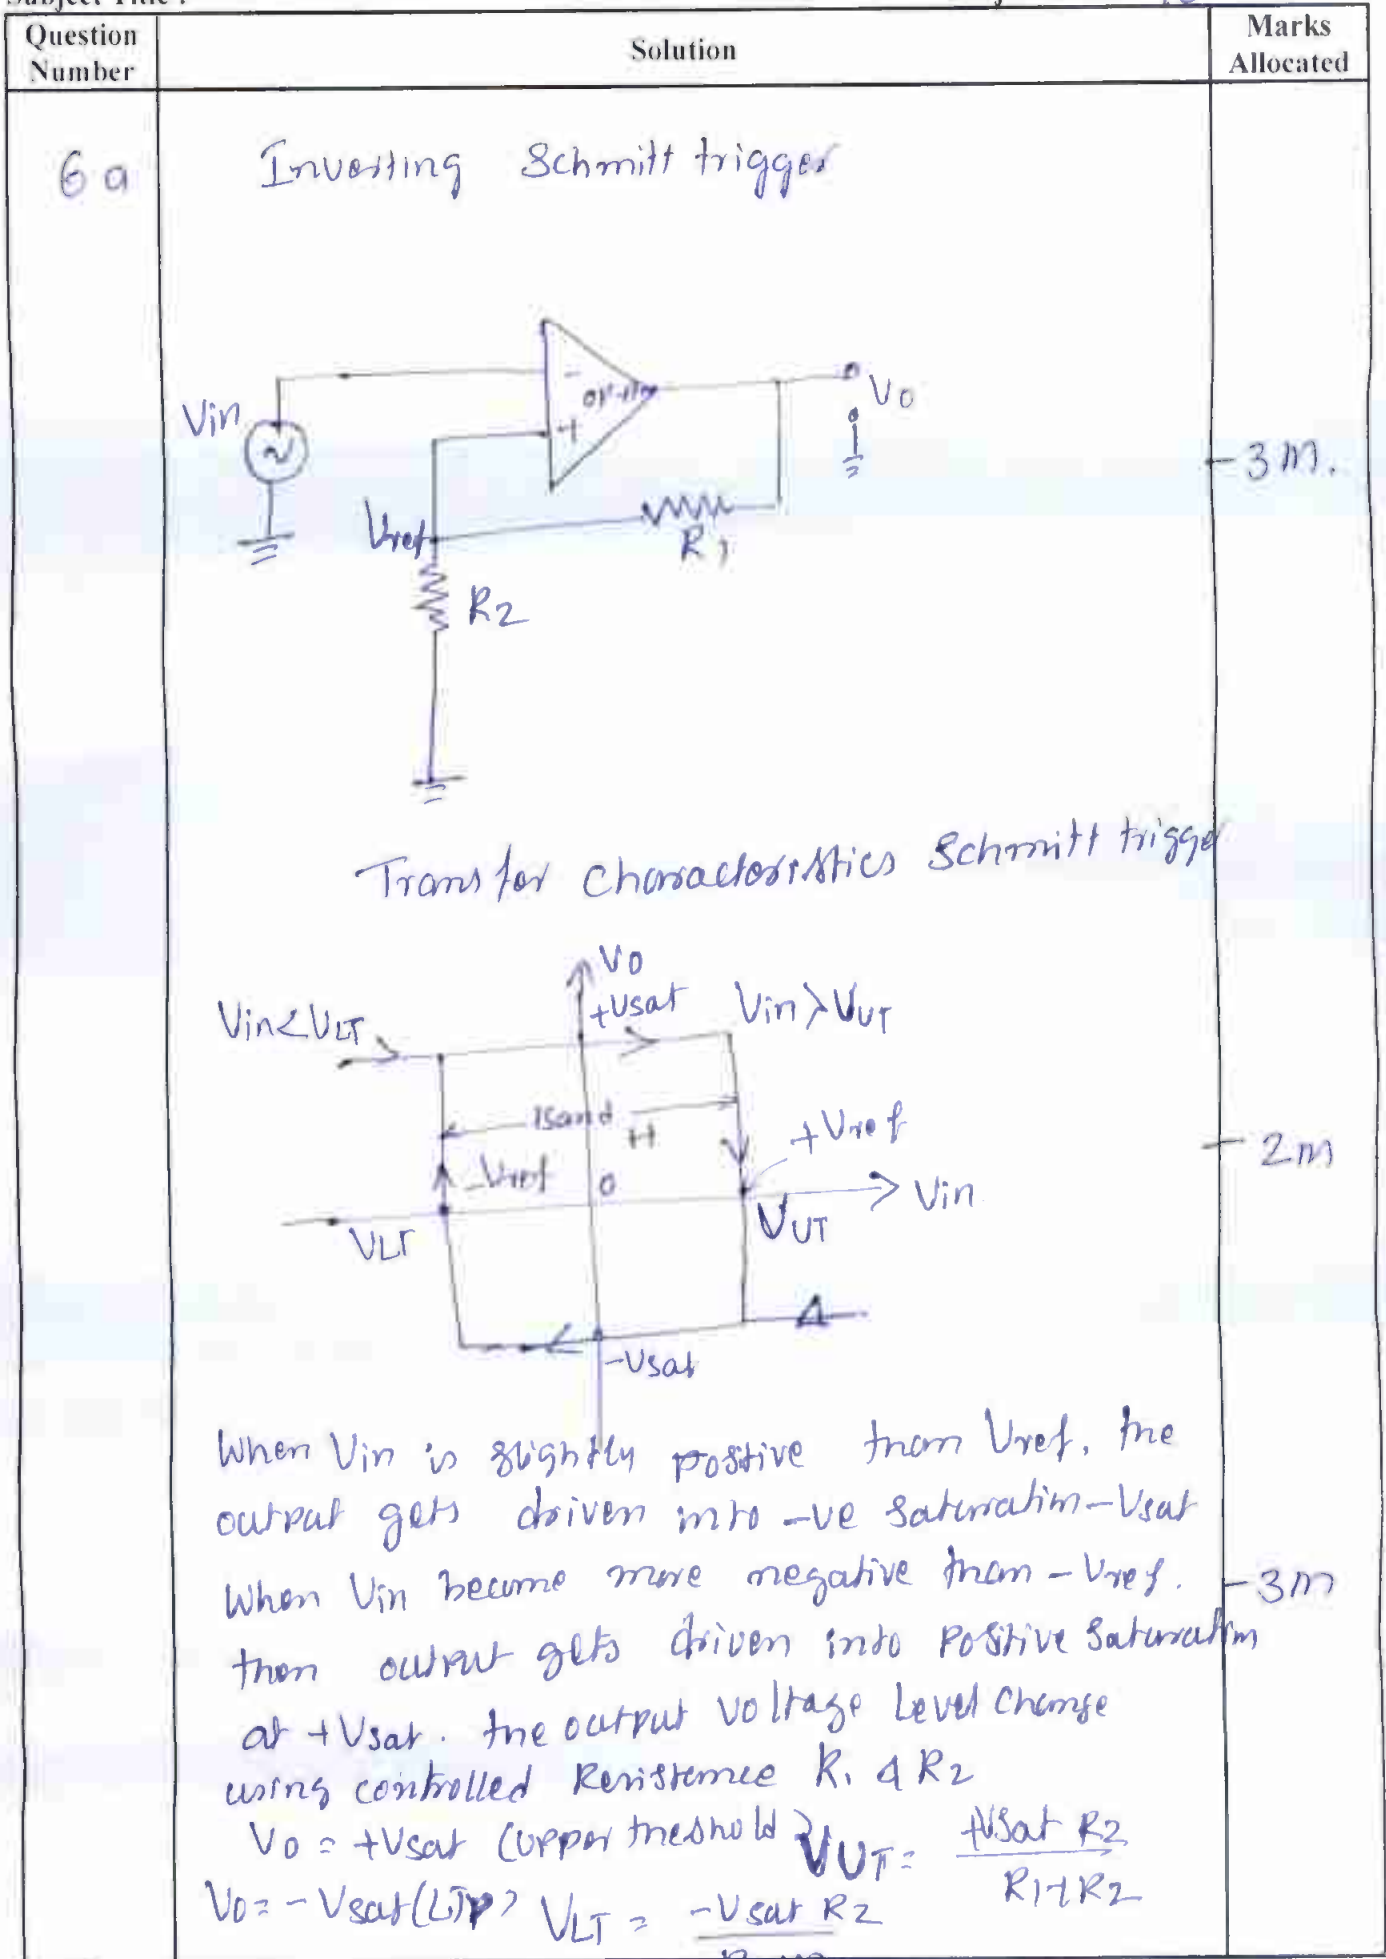 Question Number
Solution
Marks Allocated
6 a
Inverting Schmitt trigger
Vin
-
+
OP-Amp
Vo
- 3 M.
Vref
R1
R2
Transfer Characteristics Schmitt trigge
Vo
Vin<VLT
+Vsat
Vin>VUT
H
+Vref
- 2m
-Vref
0
Vin
VLT
VUT
-Vsat
When Vin is slightly postive than Vref, the
output gets driven into -ve saturation -Vsat
When Vin become more negative than -Vref.
- 3m
then output gets driven into Positive Saturation
at +Vsat. the output voltage Level Change
using controlled Resistence R1 & R2
Vo = +Vsat (upper theshold) VUT = +Vsat R2
R1+R2
Vo = -Vsat (LTP) VLT = -Vsat R2